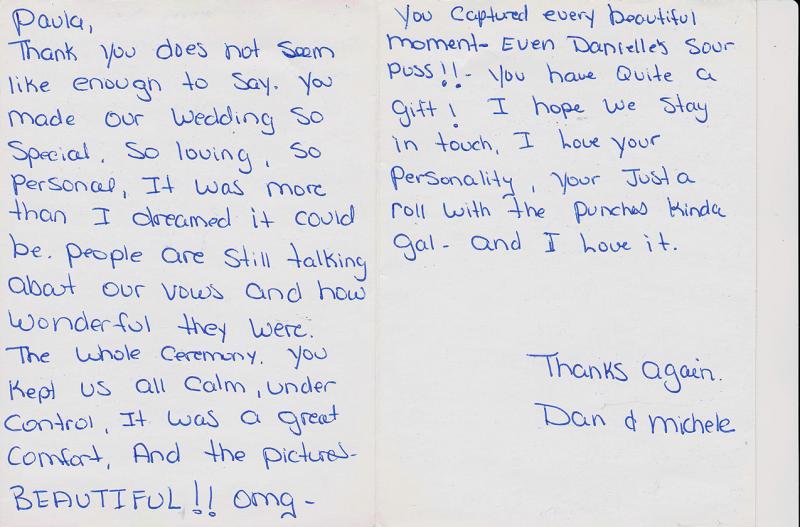 Paula,
Thank you does not seem
like enough to say. You
made our wedding so
special. So loving, so
personal, It was more
than I dreamed it could
be. people are still talking
about our vows and how
wonderful they were.
The whole ceremony. you
kept us all calm, under
control, It was a great
comfort, And the pictures-
BEAUTIFUL!! omg-
You captured every beautiful
moment- Even Danielle's sour
puss!!- you have quite a
gift! I hope we stay
in touch, I love your
personality, your just a
roll with the punches kinda
gal- and I love it.
Thanks again.
Dan & michele